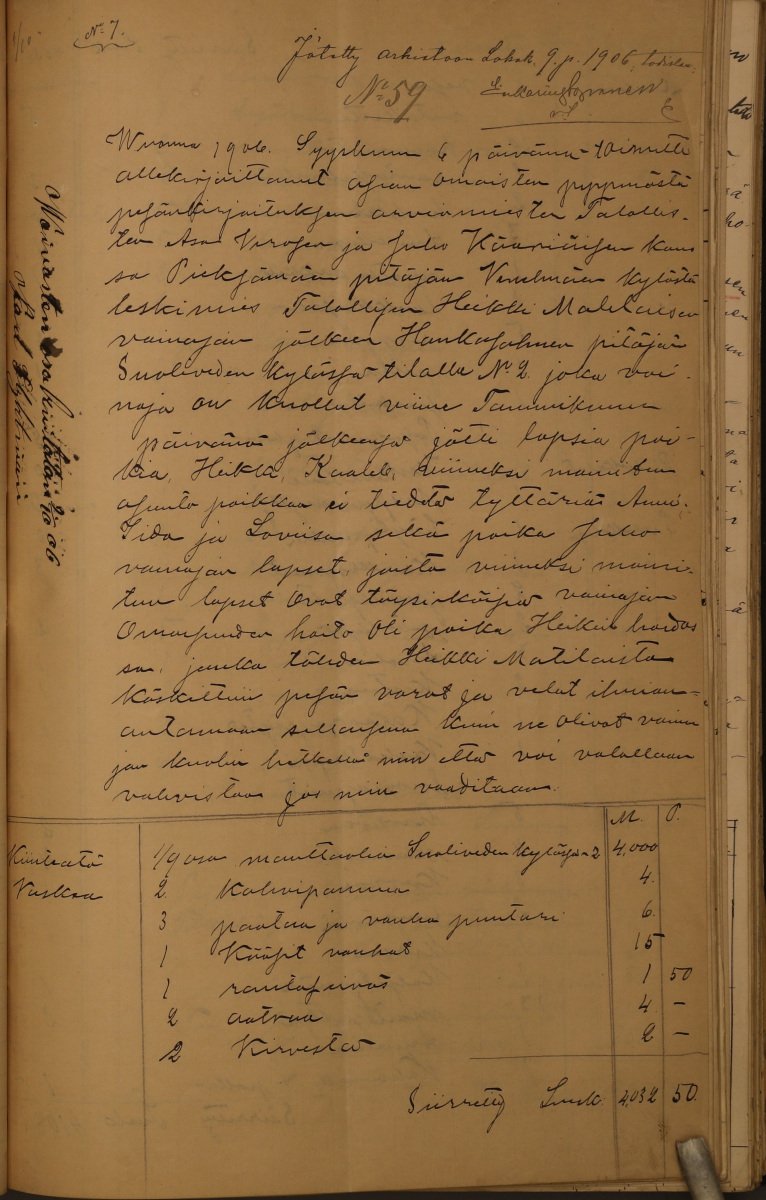 No 7.
Jätetty arkistoon Lokak. 9. p. 1906, todistaa;
No 59
Wuonna 1906. Syyskuun 6 päivänä toimitti
allekirjoittanut asian omaisten pyynnöstä
pesänkirjoituksen arviomiesten Talollis-
ten Asa Verosen ja Juho Kääriäisen kans
sa Pieksämän pitäjän Venetmäen kylästä
leskimies Talollisen Heikki Matilaisen
vainajan jälkeen Hankasalmen pitäjän
Suoliveden kylässä tilalla No 2. joka vai-
naja on kuollut viime Tammikuun
päivänä jälkeensä jätti lapsia poi-
kia, Heikki, Kaaleb, viimeksi mainitun
asunto paikkaa ei tiedetä tyttäriä Anni,
Iida ja Loviisa sekä poika Juho
vainajan lapset, joista viimeksi maini-
tun lapset ovat täysi-ikäisiä vainajan
Omaisuuden hoito oli poika Heikin hoidos
sa, jonka tähden Heikki Matilaista
käskettiin pesän varat ja velat ilmian-
antamaan sellaisena kuin ne olivat vaina
jan kuolin hetkellä niin että voi valallaan
vahvistaa jos niin vaaditaan.
M. P.
Kiinteätä 1/9 osa manttaalia Suoliveden kylässä No 2 4,000
Vaskea 2 Kahvipannua 4.
3 paataa ja vanha puntari 6.
1 Kääsit vanhat 15
1 rautaseiväs 1 50
2 aatraa 4 –
2 Kirvestä 2 –
Siirretty Smk. 4,032 50.
Vaivasten osa kiintiöistä 06